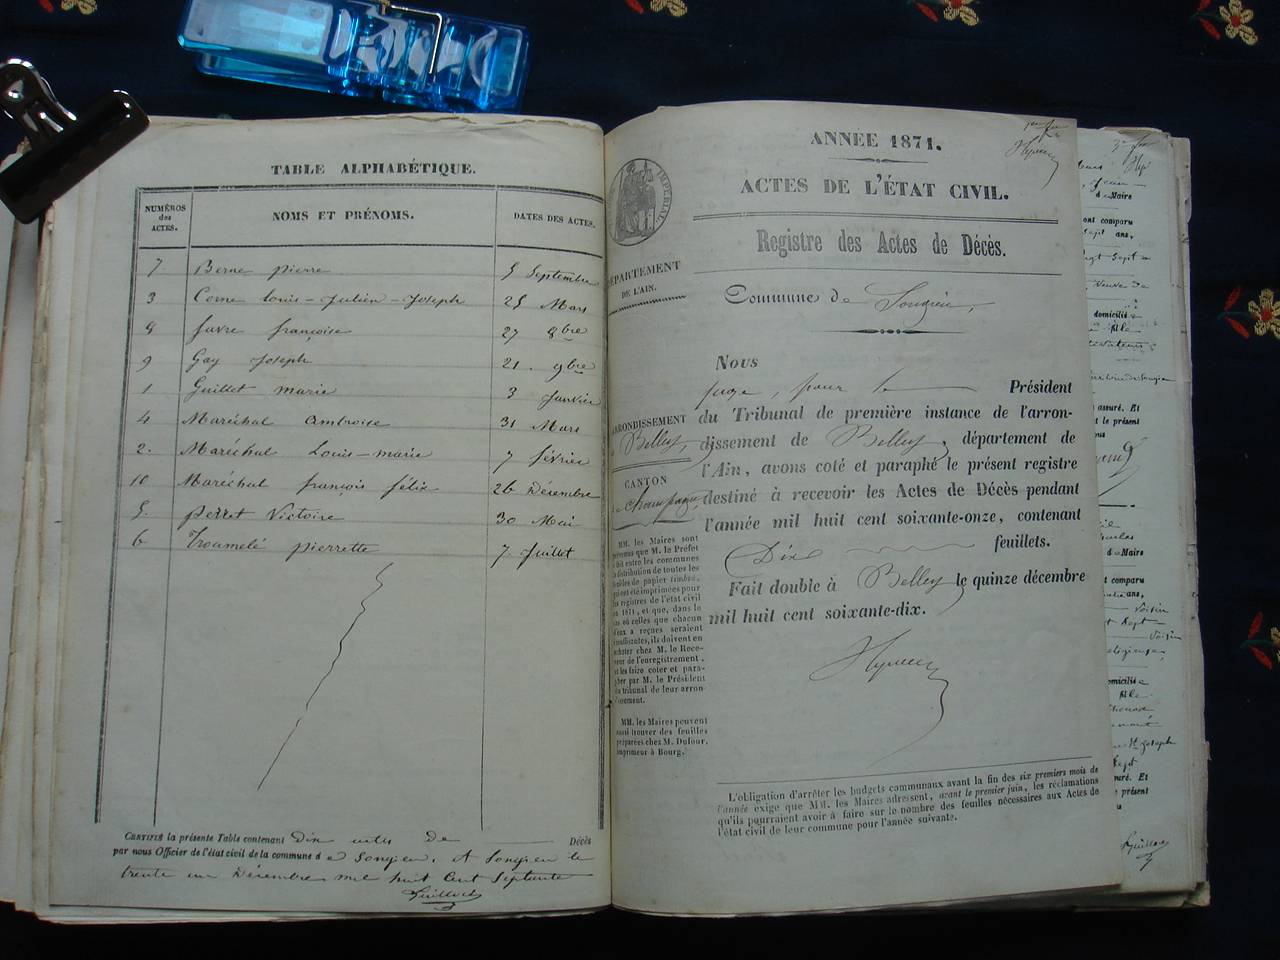 TABLE ALPHABÉTIQUE.
NUMÉROS des ACTES. NOMS ET PRÉNOMS. DATES DES ACTES.
7 Berne pierre 5 Septembre
3 Corne Louis-Julien-Joseph 25 Mars
8 favre françoise 27 8bre
9 Gay Joseph 21. 9bre
1 Guillet marie 3 Janvier
4 Maréchal Ambroise 31 Mars
2. Maréchal Louis-marie 7 février
10 Maréchal françois félix 26 Décembre
5. perret Victoire 30 Mai
6 Troumelé pierrette 7. Juillet
CERTIFIÉ la présente Table contenant Dix actes de Décès
par nous Officier de l'état civil de la commune de Songieu. A Songieu le
trente un Décembre mil huit Cent Septante
ANNÉE 1871.
ACTES DE L'ÉTAT CIVIL.
IMPÉRIAL
Registre des Actes de Décès.
DÉPARTEMENT
DE L'AIN.
Commune de Songieu,
Nous
juge, pour le Président
du Tribunal de première instance de l'arron-
dissement de Belley, département de
l'Ain, avons coté et paraphé le présent registre
destiné à recevoir les Actes de Décès pendant
l'année mil huit cent soixante-onze, contenant
Dix feuillets.
Fait double à Belley le quinze décembre
mil huit cent soixante-dix.
ARRONDISSEMENT
Belley,
CANTON
champagne,
MM. les Maires sont
prévenus que M. le Préfet
fait entre les communes
distribution de toutes les
feuilles de papier timbré,
qui ont été imprimées pour
les registres de l'état civil
en 1871, et que, dans le
cas où celles que chacun
d'eux a reçues seraient
insuffisantes, ils doivent en
acheter chez M. le Rece-
veur de l'enregistrement,
et les faire coter et para-
pher par M. le Président
du tribunal de leur arron-
dissement.
MM. les Maires peuvent
aussi trouver des feuilles
préparées chez M. Dufour,
imprimeur à Bourg.
L'obligation d'arrêter les budgets communaux avant la fin des six premiers mois de
l'année exige que MM. les Maires adressent, avant le premier juin, les réclamations
qu'ils pourraient avoir à faire sur le nombre des feuilles nécessaires aux Actes de
l'état civil de leur commune pour l'année suivante.
Maire
ont comparu
sept ans,
domiciliés
assuré. Et
le présent
Maire
comparu
ans,
voisin
domiciliés
Joseph
présent